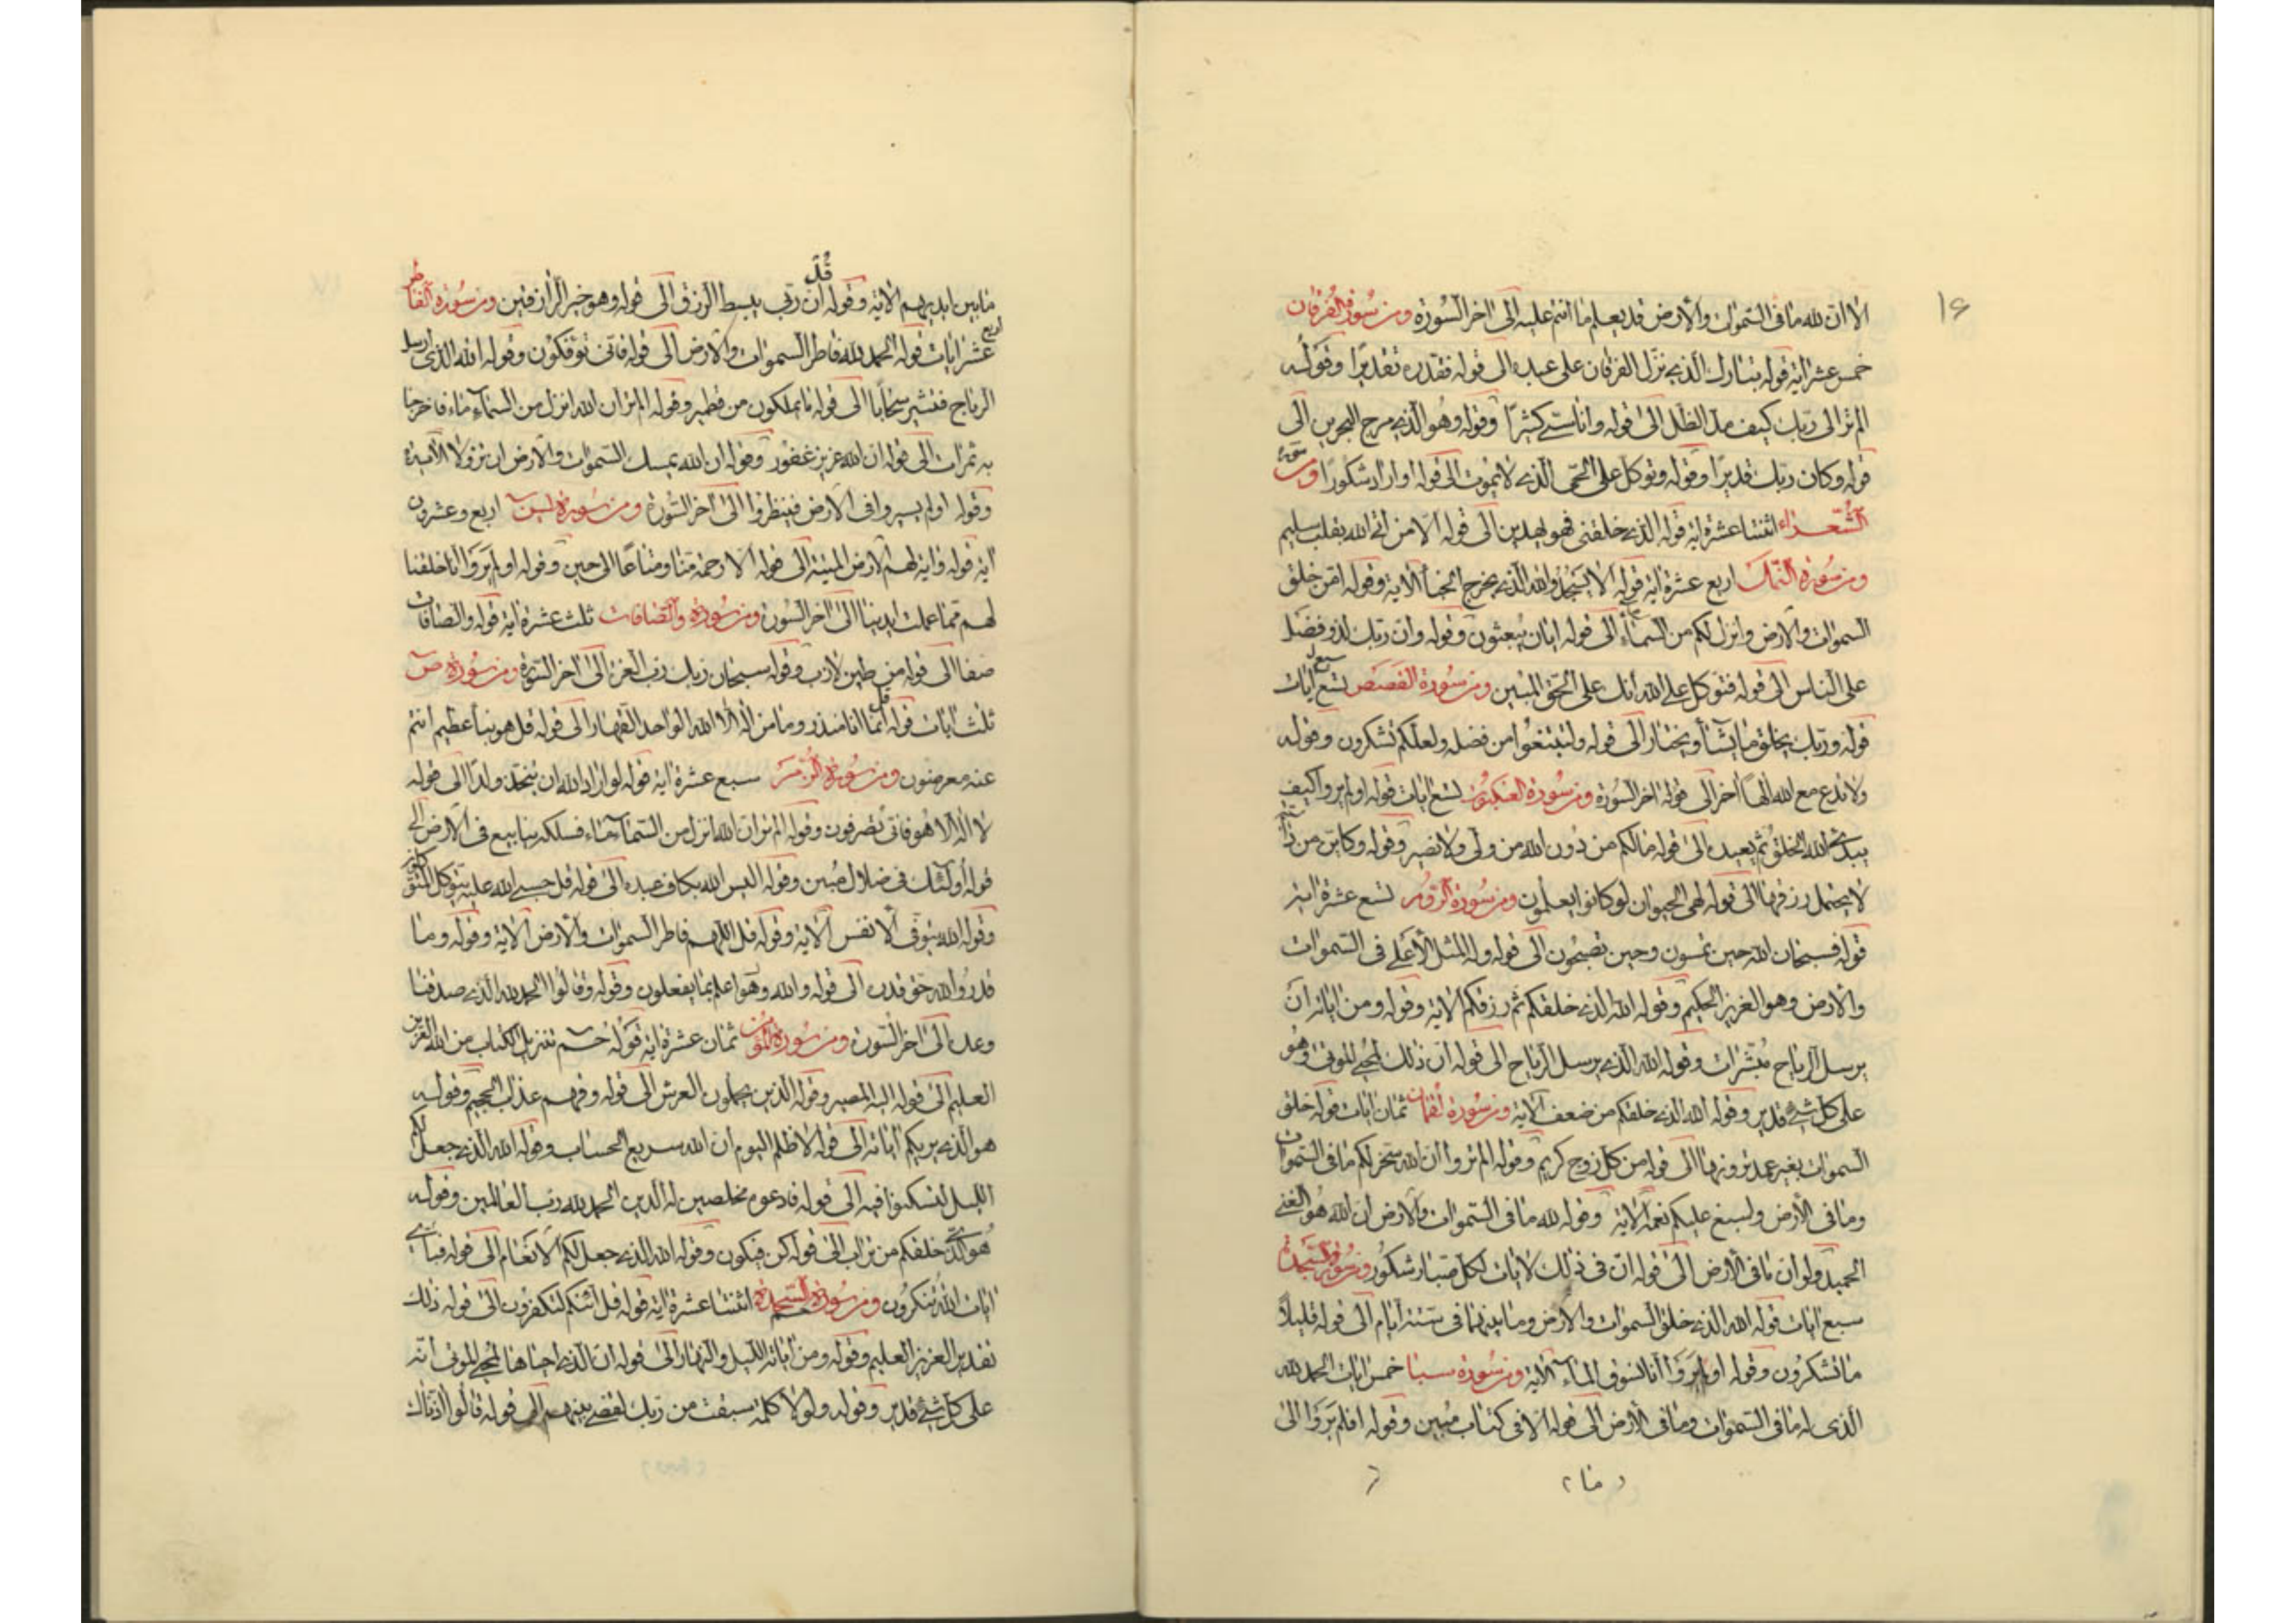 ١٦
الا ان لله ما فى السموات والارض قد يعلم ما انتم عليه الى اخر السورة ومن سورة الفرقان
خمس عشر اية قوله تبارك الذى نزل الفرقان على عبده الى قوله فقدره تقديرا وقوله
الم تر الى ربك كيف مد الظل الى قوله واناسى كثيرا وقوله وهو الذى مرج البحرين الى
قوله وكان ربك قديرا وقوله وتوكل على الحى الذى لا يموت الى قوله او اراد شكورا ومن سورة
الشعراء اثنتا عشرة اية قوله الذى خلقنى فهو يهدين الى قوله الا من اتى الله بقلب سليم
ومن سورة النمل اربع عشرة اية قوله الا يسجدوا لله الذى يخرج الخبأ الاية وقوله امن خلق
السموات والارض وانزل لكم من السماء ماء الى قوله ايان يبعثون وقوله وان ربك لذو فضل
على الناس الى قوله فتوكل على الله انك على الحق المبين ومن سورة القصص تسع ايات
قوله وربك يخلق ما يشاء ويختار الى قوله ولتبتغوا من فضله ولعلكم تشكرون وقوله
ولا تدع مع الله الها اخر الى قوله اخر السورة ومن سورة العنكبوت تسع ايات قوله اولم يروا كيف
يبدئ الله الخلق ثم يعيده الى قوله ما لكم من دون الله من ولى ولا نصير وقوله وكاين من دابة
لا تحمل رزقها الى قوله لهى الحيوان لو كانوا يعلمون ومن سورة الروم تسع عشرة اية
قوله فسبحان الله حين تمسون وحين تصبحون الى قوله وله المثل الاعلى فى السموات
والارض وهو العزيز الحكيم وقوله الله الذى خلقكم ثم رزقكم الاية وقوله ومن اياته ان
يرسل الرياح مبشرات وقوله الله الذى يرسل الرياح الى قوله ان ذلك لمحيى الموتى وهو
على كل شئ قدير وقوله الله الذى خلقكم من ضعف الاية ومن سورة لقمان ثمان ايات قوله خلق
السموات بغير عمد ترونها الى قوله من كل زوج كريم وقوله الم تروا ان الله سخر لكم ما فى السموات
وما فى الارض واسبغ عليكم نعمه الاية وقوله لله ما فى السموات والارض ان الله هو الغنى
الحميد ولو ان ما فى الارض الى قوله ان فى ذلك لايات لكل صبار شكور ومن سورة السجدة
سبع ايات قوله الله الذى خلق السموات والارض وما بينهما فى ستة ايام الى قوله قليلا
ما تشكرون وقوله اولم يروا انا نسوق الماء الاية ومن سورة سبا خمس ايات الحمد لله
الذى له ما فى السموات وما فى الارض الى قوله الا فى كتاب مبين وقوله افلم يروا الى
ما
ما بين ايديهم الاية وقوله قل ان ربى يبسط الرزق الى قوله وهو خير الرازقين ومن سورة الفاطر
اربع عشر ايات قوله الحمد لله فاطر السموات والارض الى قوله فانى تؤفكون وقوله الله الذى ارسل
الرياح فتثير سحابا الى قوله ما يملكون من قطمير وقوله الم تر ان الله انزل من السماء ماء فاخرجنا
به ثمرات الى قوله ان الله عزيز غفور وقوله ان الله يمسك السموات والارض ان تزولا الاية
وقوله اولم يسيروا فى الارض فينظروا الى اخر السورة ومن سورة يس اربع وعشرون
اية قوله واية لهم الارض الميتة الى قوله الا رحمة منا ومتاعا الى حين وقوله اولم يروا انا خلقنا
لهم مما عملت ايدينا الى اخر السورة ومن سورة والصافات ثلث عشرة اية قوله والصافات
صفا الى قوله من طين لازب وقوله سبحان ربك رب العزة الى اخر السورة ومن سورة ص
ثلث ايات قوله قل انما انا منذر وما من اله الا الله الواحد القهار الى قوله قل هو نبأ عظيم انتم
عنه معرضون ومن سورة الزمر سبع عشرة اية قوله لو اراد الله ان يتخذ ولدا الى قوله
لا اله الا هو فانى تصرفون وقوله الم تر ان الله انزل من السماء ماء فسلكه ينابيع فى الارض الى
قوله اولئك فى ضلال مبين وقوله اليس الله بكاف عبده الى قوله قل حسبى الله عليه يتوكل المتوكلون
وقوله الله يتوفى الانفس الاية وقوله قل اللهم فاطر السموات والارض الاية وقوله وما
قدروا الله حق قدره الى قوله والله وهو اعلم بما يفعلون وقوله وقالوا الحمد لله الذى صدقنا
وعده الى اخر السورة ومن سورة المؤمن ثمان عشرة اية قوله حم تنزيل الكتاب من الله العزيز
العليم الى قوله اليه المصير وقوله الذين يحملون العرش الى قوله وقهم عذاب الجحيم وقوله
هو الذى يريكم اياته الى قوله لا ظلم اليوم ان الله سريع الحساب وقوله الله الذى جعل لكم
الليل لتسكنوا فيه الى قوله فادعوه مخلصين له الدين الحمد لله رب العالمين وقوله
هو الذى خلقكم من تراب الى قوله كن فيكون وقوله الله الذى جعل لكم الانعام الى قوله فباى
ايات الله تنكرون ومن سورة السجدة اثنتا عشرة اية قوله قل ائنكم لتكفرون الى قوله ذلك
تقدير العزيز العليم وقوله ومن اياته الليل والنهار الى قوله ان الذى احياها لمحيى الموتى انه
على كل شئ قدير وقوله ولولا كلمة سبقت من ربك لقضى بينهم الى قوله قالوا اذناك